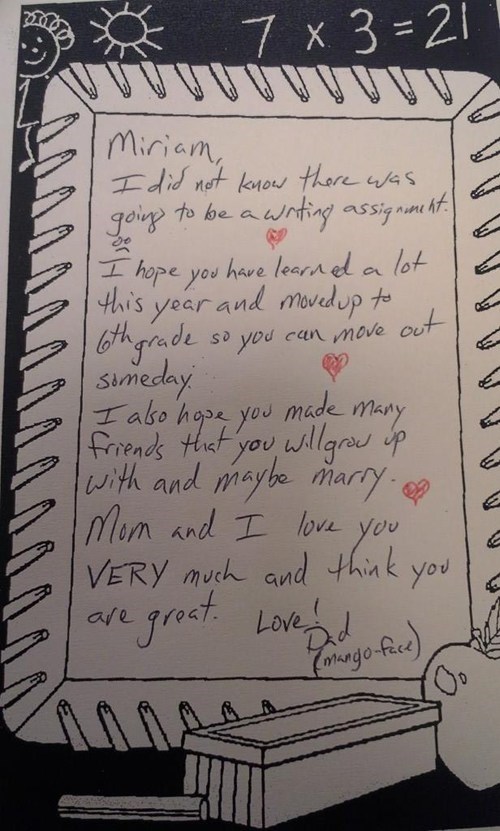 7 x 3 = 21
Miriam,
I did not know there was
going to be a writing assignment.
I hope you have learned a lot
this year and moved up to
6th grade so you can move out
someday.
I also hope you made many
friends that you will grow up
with and maybe marry.
Mom and I love you
VERY much and think you
are great. Love!
Dad
(mango-face)